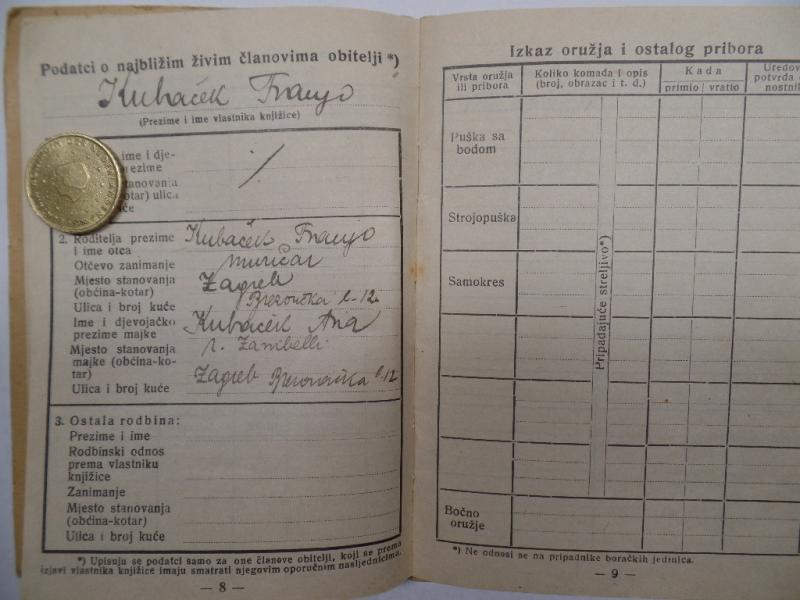 Podatci o najbližim živim članovima obitelji *)
Kubaček Franjo
(Prezime i ime vlastnika knjižice)
ime i dje-
ezime
tanovanja
otar) ulica
će
2. Roditelja prezime i ime otca Kubaček Franjo
Otčevo zanimanje
Mjesto stanovanja (občina-kotar) Zagreb
Ulica i broj kuće
Ime i djevojačko prezime majke Kubaček Ana
r. Zambelli
Mjesto stanovanja majke (občina-kotar) Zagreb
Ulica i broj kuće
3. Ostala rodbina:
Prezime i ime
Rodbinski odnos
prema vlastniku
knjižice
Zanimanje
Mjesto stanovanja
(občina-kotar)
Ulica i broj kuće
*) Upisuju se podatci samo za one članove obitelji, koji se prema
izjavi vlastnika knjižice imaju smatrati njegovim oporučnim nasljednicima.
— 8 —
Izkaz oružja i ostalog pribora
Vrsta oružja
ili pribora
Koliko komada i opis
(broj, obrazac i t. d.)
Kada
primio
vratio
Uredov
potvrda o
nostnik
Puška sa
bodom
Strojopuška
Samokres
Pripadajuće streljivo*)
Bočno
oružje
*) Ne odnosi se na pripadnike boračkih jedinica.
— 9 —